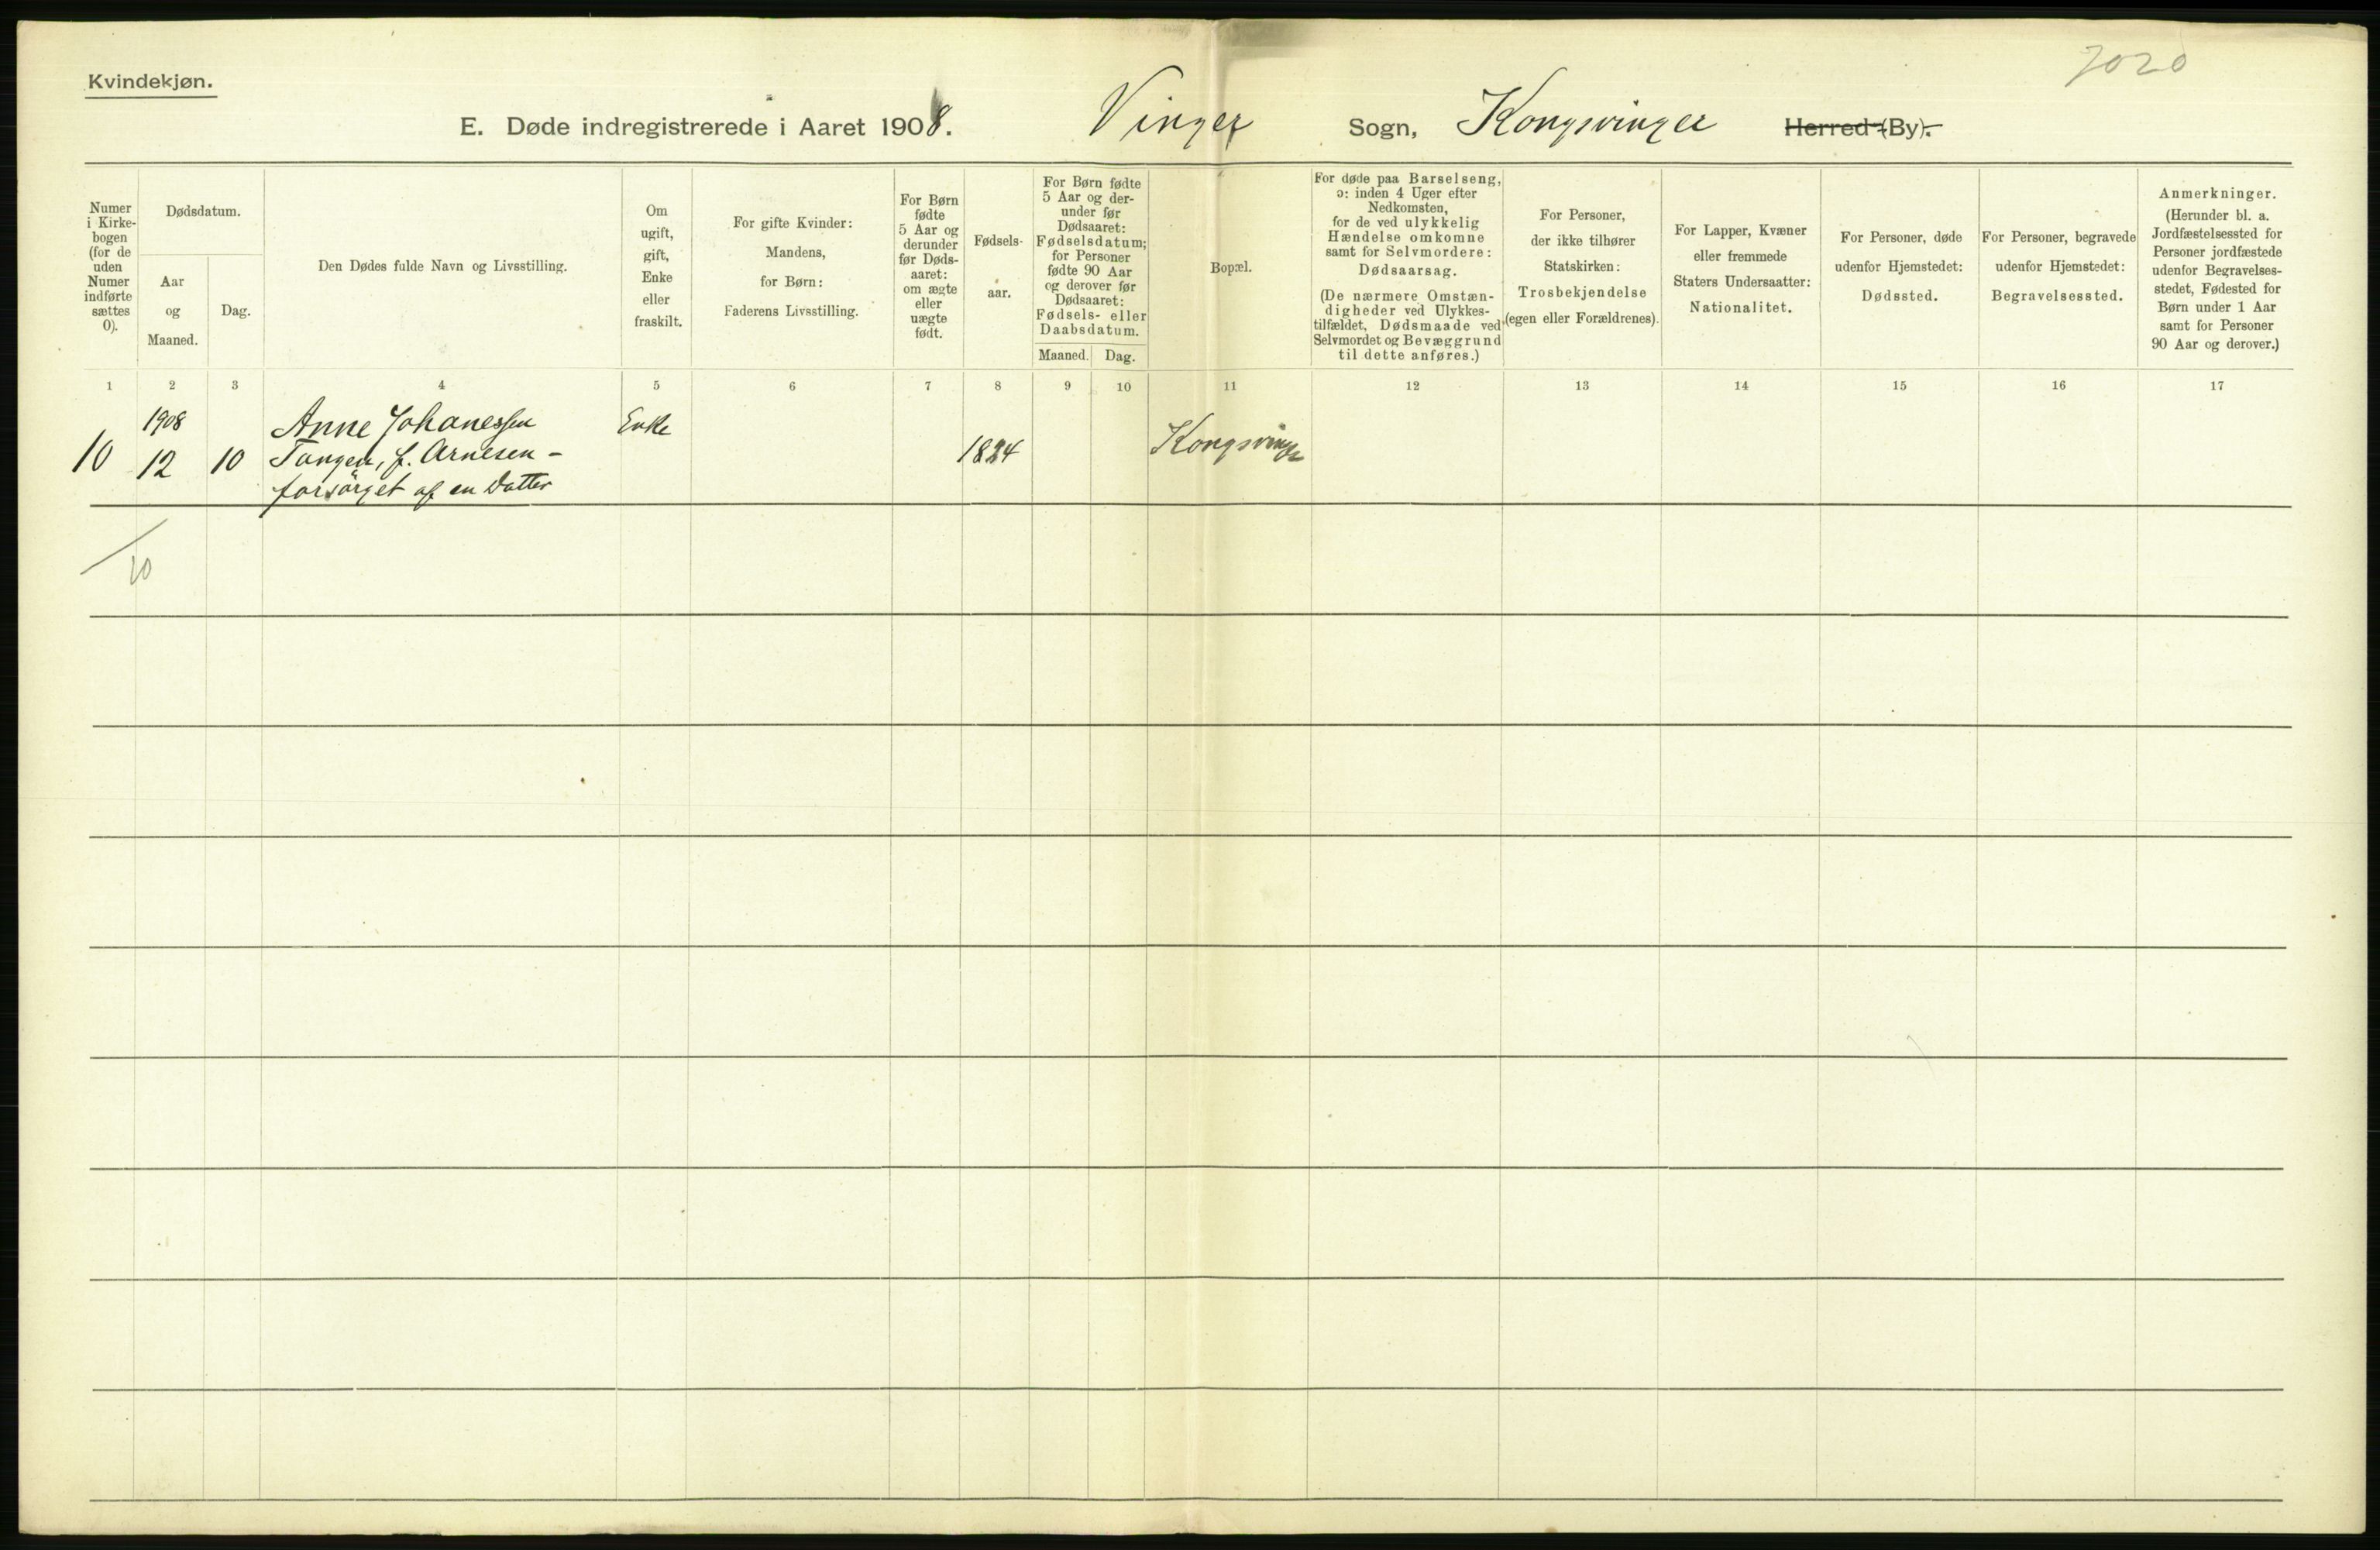 7020
Kvindekjøn.
E. Døde indregistrerede i Aaret 1908. Vinger Sogn, Kongsvinger Herred (By).
Numer
i Kirke-
bogen
(for de
uden
Numer
indførte
sættes
0).
Dødsdatum.
Aar
og
Maaned.
Dag.
Den Dødes fulde Navn og Livsstilling.
Om
ugift,
gift,
Enke
eller
fraskilt.
For gifte Kvinder:
Mandens,
for Børn:
Faderens Livsstilling.
For Børn
fødte
5 Aar og
derunder
før Døds-
aaret:
om ægte
eller
uægte
født.
Fødsels-
aar.
For Børn fødte
5 Aar og der-
under før
Dødsaaret:
Fødselsdatum;
for Personer
fødte 90 Aar
og derover før
Dødsaaret:
Fødsels- eller
Daabsdatum.
Maaned.
Dag.
Bopæl.
For døde paa Barselseng,
ɔ: inden 4 Uger efter
Nedkomsten,
for de ved ulykkelig
Hændelse omkomne
samt for Selvmordere:
Dødsaarsag.
(De nærmere Omstæn-
digheder ved Ulykkes-
tilfældet, Dødsmaade ved
Selvmordet og Bevæggrund
til dette anføres.)
For Personer,
der ikke tilhører
Statskirken:
Trosbekjendelse
(egen eller Forældrenes).
For Lapper, Kvæner
eller fremmede
Staters Undersaatter:
Nationalitet.
For Personer, døde
udenfor Hjemstedet:
Dødssted.
For Personer, begravede
udenfor Hjemstedet:
Begravelsessted.
Anmerkninger.
(Herunder bl. a.
Jordfæstelsessted for
Personer jordfæstede
udenfor Begravelses-
stedet, Fødested for
Børn under 1 Aar
samt for Personer
90 Aar og derover.)
1 2 3 4 5 6 7 8 9 10 11 12 13 14 15 16 17
1908 Anne Johanessen Enke
10 12 10 Tangen, f. Arnesen - 1824 Kongsvinger
forsörget af en Datter
10